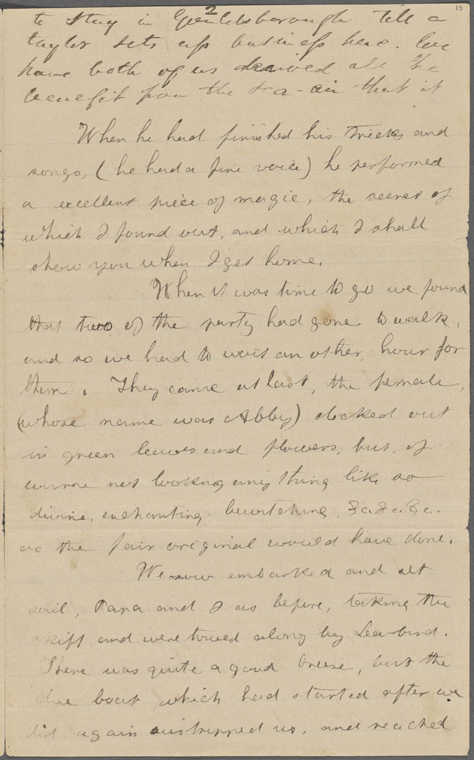 13
2
to stay in till a
taylor sets up business here. We
have both of us derived all the
benefit from the sea-air that it
When he had finished his tricks and
songs, (he had a fine voice) he performed
a excellent piece of magic, the secret of
which I found out, and which I shall
show you when I get home.
When it was time to go we found
that two of the party had gone to walk,
and so we had to wait an other hour for
them. They came at last, the female,
(whose name was Abby) decked out
in green leaves and flowers, but, of
course not looking anything like so
divine, enchanting, bewitching, &c. &c. &c.
as the fair original would have done.
We now embarked and set
sail, Papa and I as before, taking the
skiff and were towed along by Sea-bird.
There was quite a good breeze, but the
boat, which had started after we
did again outstripped us, and reached